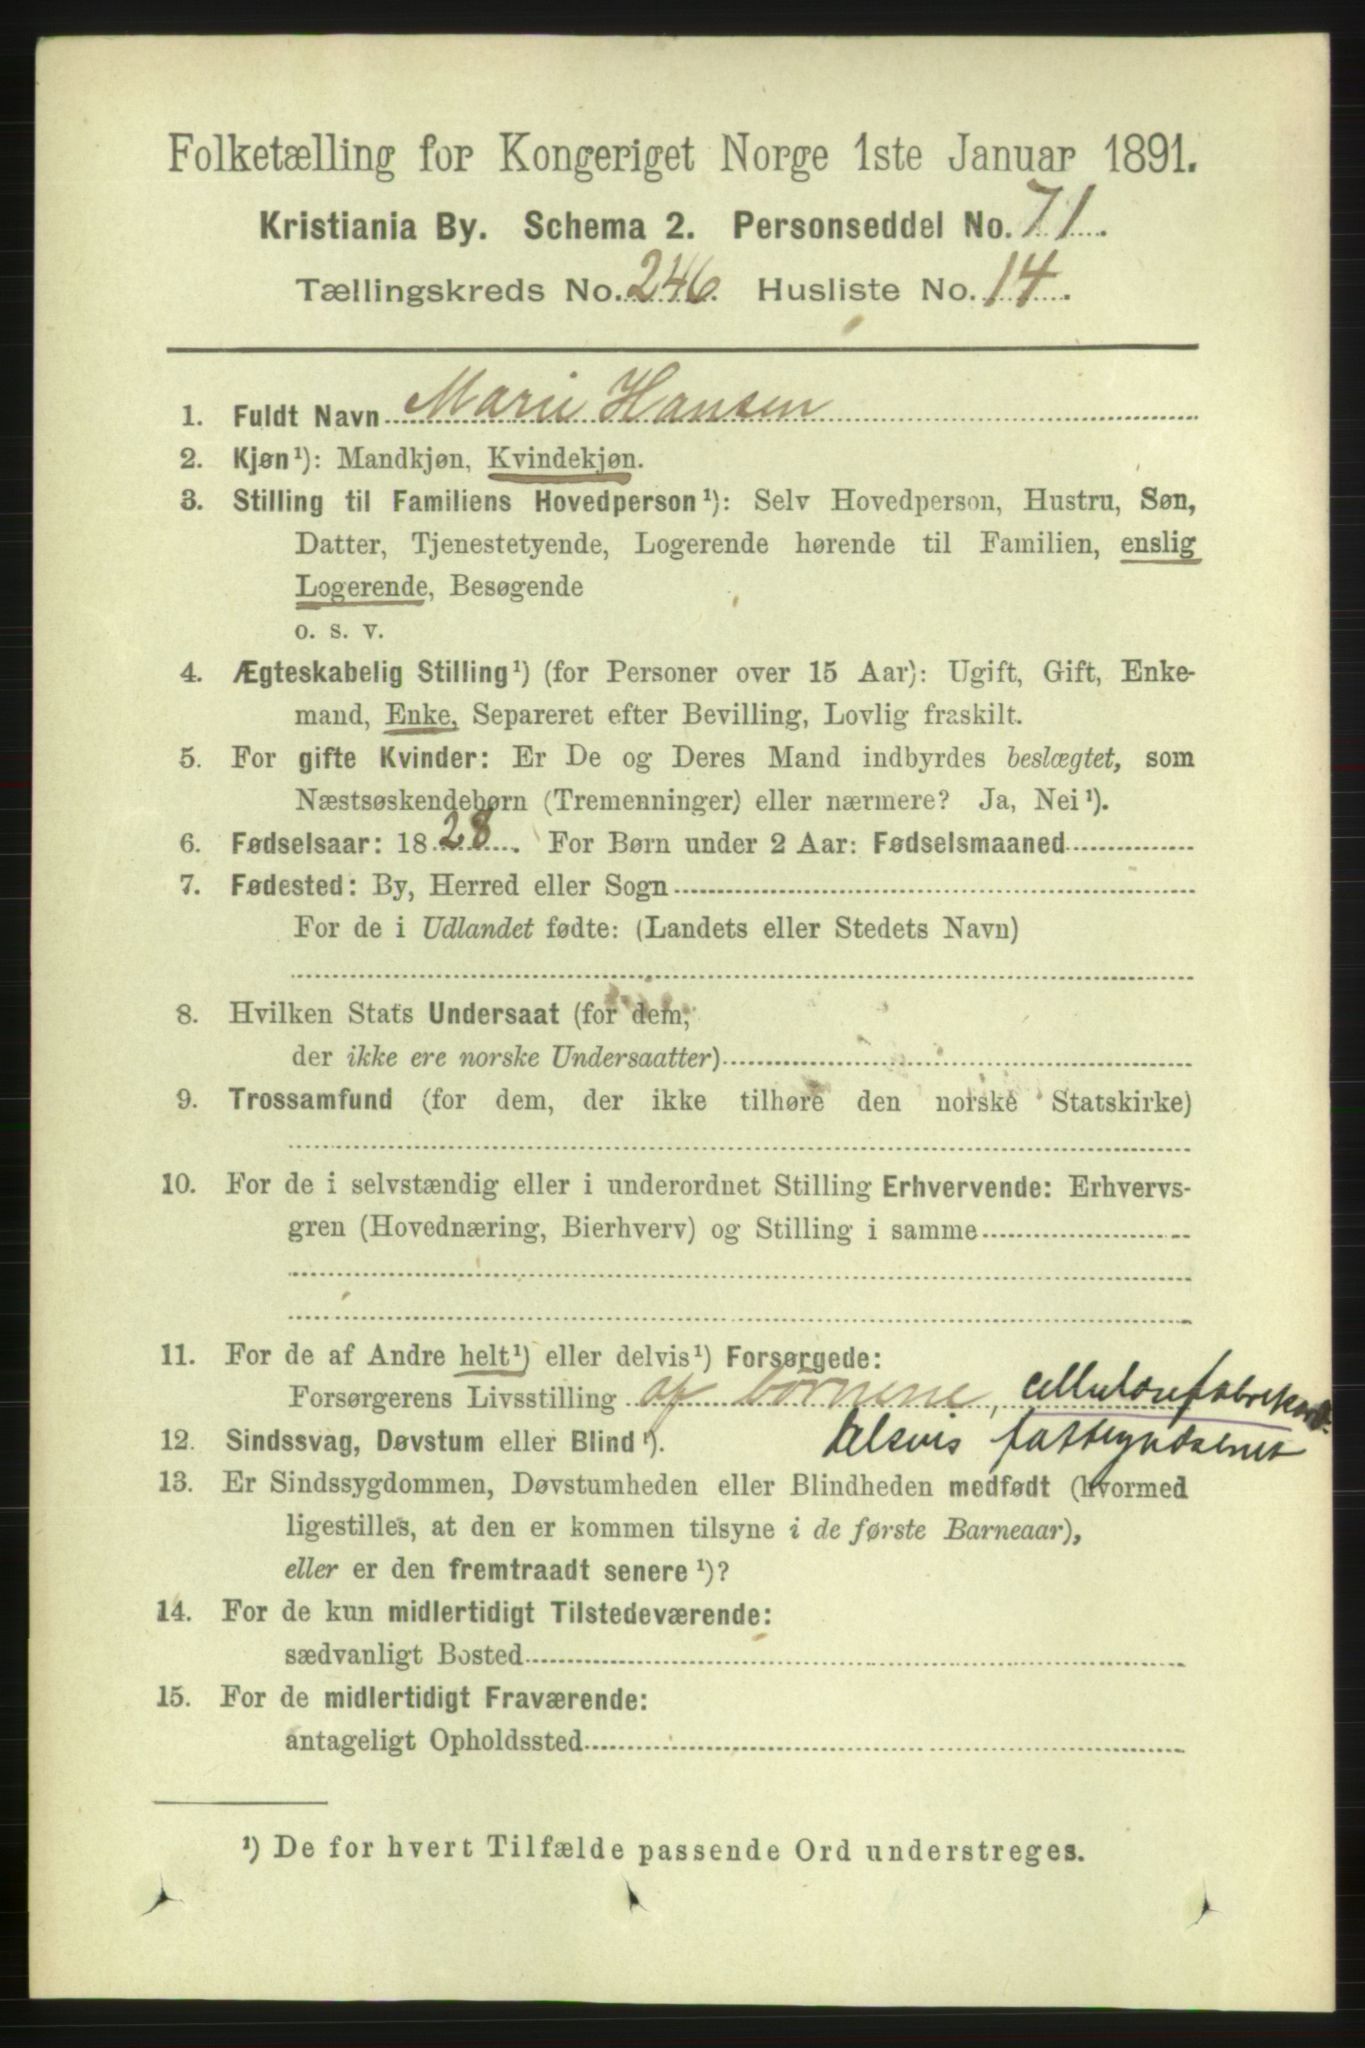 Folketælling for Kongeriget Norge 1ste Januar 1891.
Kristiania By. Schema 2. Personseddel No. 71.
Tællingskreds No. 246. Husliste No. 14.
1. Fuldt Navn Marie Hansen
2. Kjøn¹): Mandkjøn, Kvindekjøn.
3. Stilling til Familiens Hovedperson¹): Selv Hovedperson, Hustru, Søn,
Datter, Tjenestetyende, Logerende hørende til Familien, enslig
Logerende, Besøgende
o. s. v.
4. Ægteskabelig Stilling¹) (for Personer over 15 Aar): Ugift, Gift, Enke-
mand, Enke, Separeret efter Bevilling, Lovlig fraskilt.
5. For gifte Kvinder: Er De og Deres Mand indbyrdes beslægtet, som
Næstsøskendebørn (Tremenninger) eller nærmere? Ja, Nei¹).
6. Fødselsaar: 1828. For Børn under 2 Aar: Fødselsmaaned
7. Fødested: By, Herred eller Sogn
For de i Udlandet fødte: (Landets eller Stedets Navn)
8. Hvilken Stats Undersaat (for dem,
der ikke ere norske Undersaatter)
9. Trossamfund (for dem, der ikke tilhøre den norske Statskirke)
10. For de i selvstændig eller i underordnet Stilling Erhvervende: Erhvervs-
gren (Hovednæring, Bierhverv) og Stilling i samme
11. For de af Andre helt¹) eller delvis¹) Forsørgede:
Forsørgerens Livsstilling af børnene,
12. Sindssvag, Døvstum eller Blind¹). delsvis
13. Er Sindssygdommen, Døvstumheden eller Blindheden medfødt (hvormed
ligestilles, at den er kommen tilsyne i de første Barneaar),
eller er den fremtraadt senere¹)?
14. For de kun midlertidigt Tilstedeværende:
sædvanligt Bosted
15. For de midlertidigt Fraværende:
antageligt Opholdssted
¹) De for hvert Tilfælde passende Ord understreges.